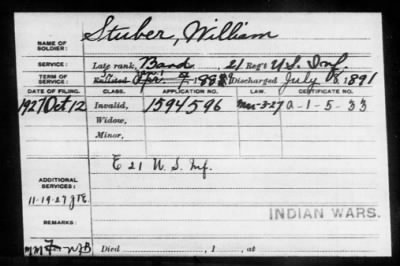 NAME OF SOLDIER: Stuber, William
SERVICE: Late rank, Band 21 Reg't U.S. Inf.
TERM OF SERVICE: Enlisted Apr. 188 Discharged July 8, 1891
DATE OF FILING. CLASS. APPLICATION NO. LAW. CERTIFICATE NO.
1927 Oct 12 Invalid, 1594596 Mar-3-27 a-1-5-33
Widow,
Minor,
E 21 U.S. Inf.
ADDITIONAL SERVICES:
11-19-27
REMARKS:
INDIAN WARS.
Died , 1 , at